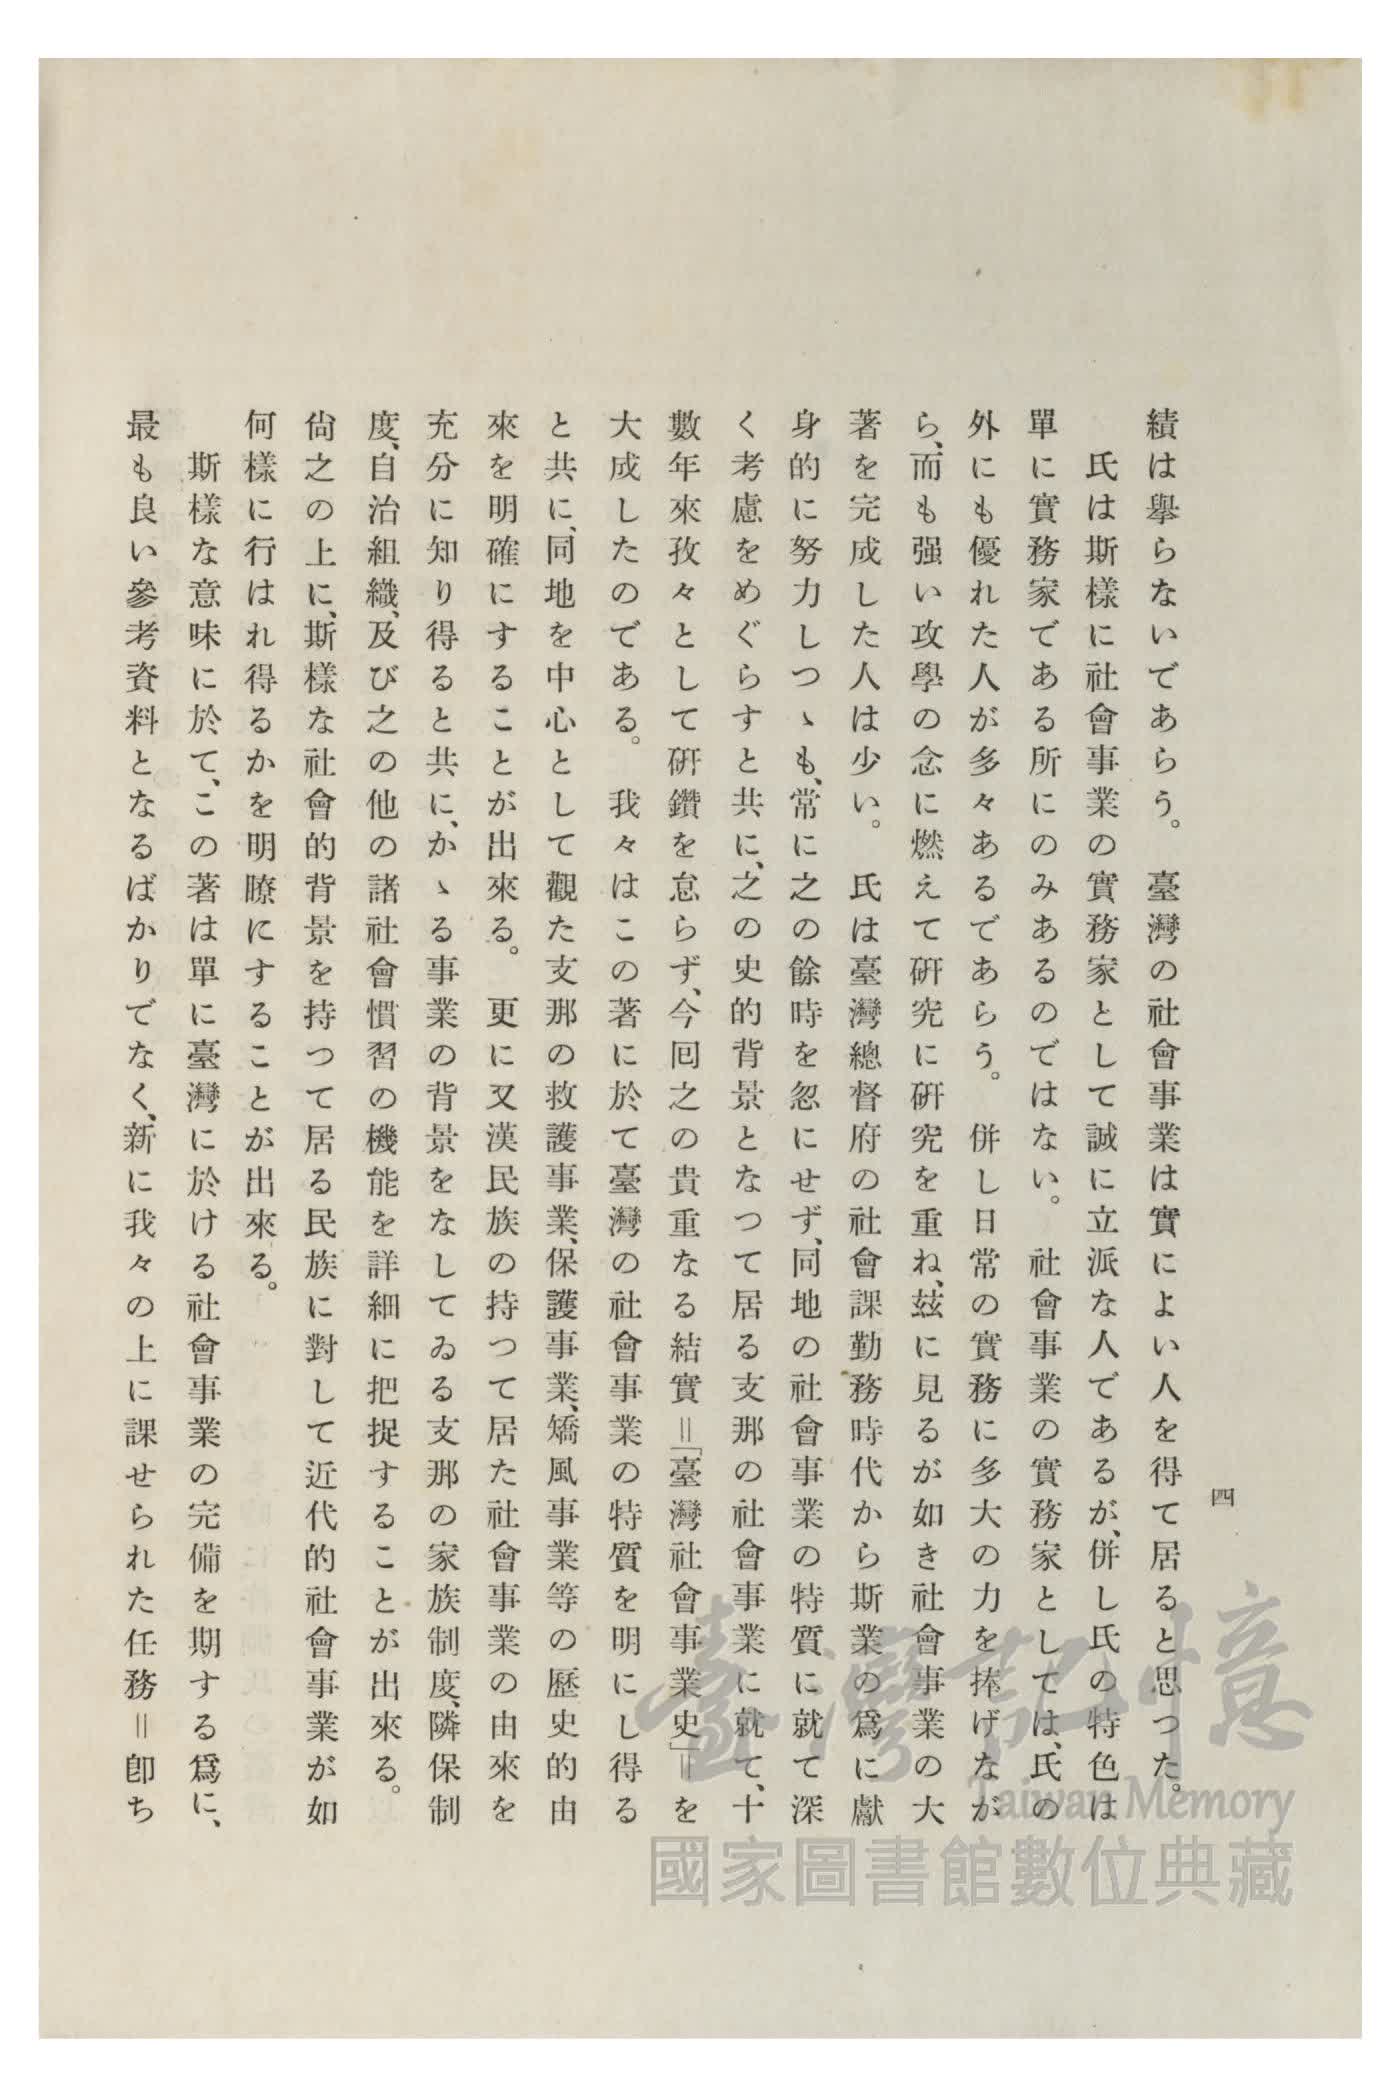 四
績は擧らないであらう。臺灣の社會事業は實によい人を得て居ると思つた。
氏は斯樣に社會事業の實務家として誠に立派な人であるが、併し氏の特色は
單に實務家である所にのみあるのではない。社會事業の實務家としては、氏の
外にも優れた人が多々あるであらう。併し日常の實務に多大の力を捧げなが
ら、而も强い攻學の念に燃えて硏究に硏究を重ね、玆に見るが如き社會事業の大
著を完成した人は少い。氏は臺灣總督府の社會課勤務時代から斯業の爲に獻
身的に努力しつゝも、常に之の餘時を忽にせず、同地の社會事業の特質に就て深
く考慮をめぐらすと共に、之の史的背景となつて居る支那の社會事業に就て、十
數年來孜々として硏鑽を怠らず、今囘之の貴重なる結實＝「臺灣社會事業史」＝を
大成したのである。我々はこの著に於て臺灣の社會事業の特質を明にし得る
と共に、同地を中心として觀た支那の救護事業、保護事業、矯風事業等の歷史的由
來を明確にすることが出來る。更に又漢民族の持つて居た社會事業の由來を
充分に知り得ると共に、かゝる事業の背景をなしてゐる支那の家族制度、隣保制
度、自治組織、及び之の他の諸社會慣習の機能を詳細に把捉することが出來る。
尙之の上に、斯樣な社會的背景を持つて居る民族に對して近代的社會事業が如
何樣に行はれ得るかを明瞭にすることが出來る。
斯樣な意味に於て、この著は單に臺灣に於ける社會事業の完備を期する爲に、
最も良い參考資料となるばかりでなく、新に我々の上に課せられた任務＝卽ち
臺灣記憶
Taiwan Memory
國家圖書館數位典藏